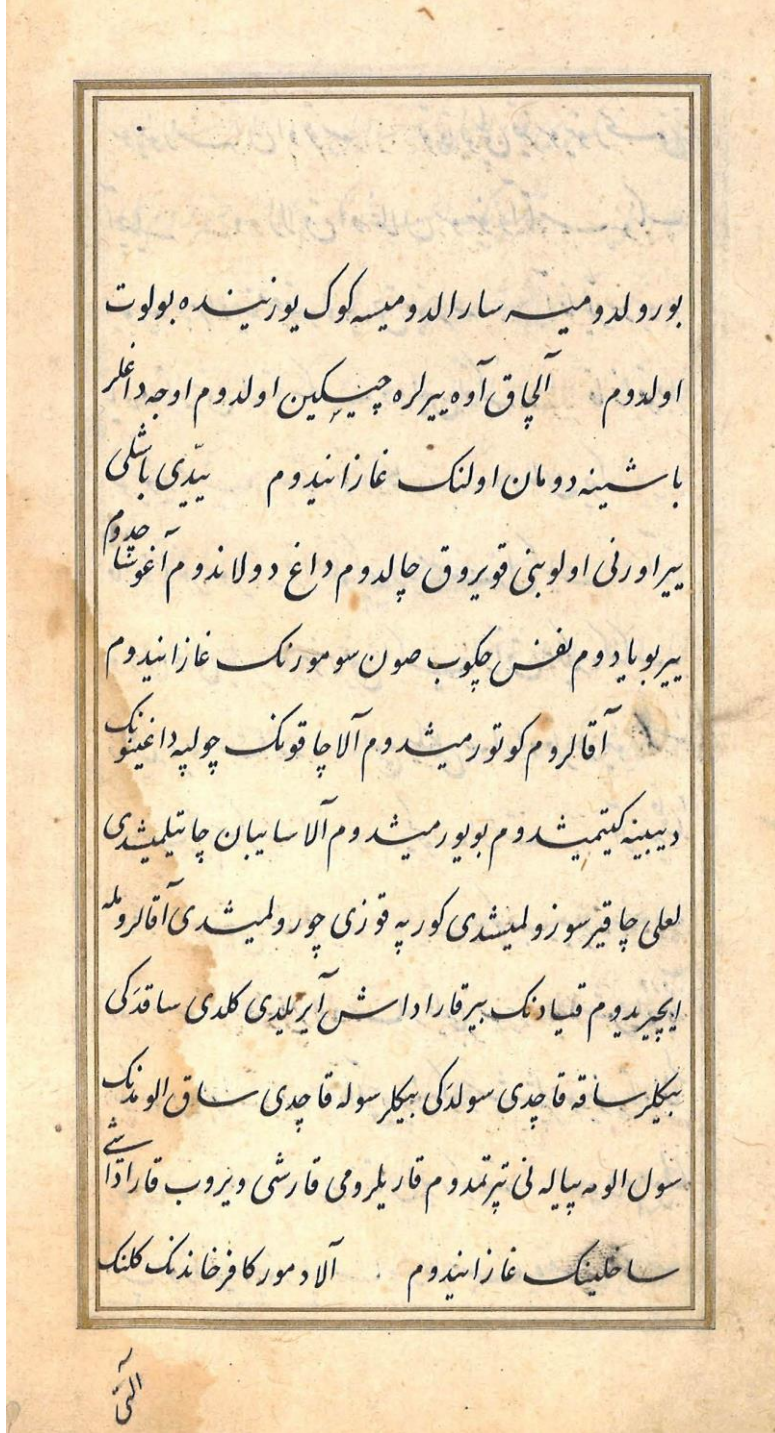 بورولدومیسه سارالدومیسه کوک یوزنینده بولوت
اولدوم آلچاق آوه ییرلره چیسکین اولدوم اوجه داغلر
باشینه دومان اولنک غازانیدوم ییدّی باشلی
ییر اورنی اولوبنی قویروق چالدوم داغ دولاندوم آغو ساچدوم
ییر بویادوم نفس چکوب صون سومورنک غازانیدوم
آقالروم کوتورمیشدوم آلاجاقونک چولپه داغینونک
دیبینه کیتمیشدوم بویورمیشدوم آلا سایبان چاتیلمیشدی
لعلی چاقیر سوزولمیشدی کورپه قوزی چورولمیشدی آقالرومله
ایچیریدوم قیادنک بیر قاراداش آیریلدی کلدی ساقدَکی
بیکلر ساقه قاچدی سولدَکی بیکلر سوله قاچدی ساق الومدنک
سول الومه پیاله نی تپرتمدوم قاریلرومی قارشی ویروب قاراداشی
ساخلینک غازانیدوم آلادمور کافر خاندنک کلنک
التی